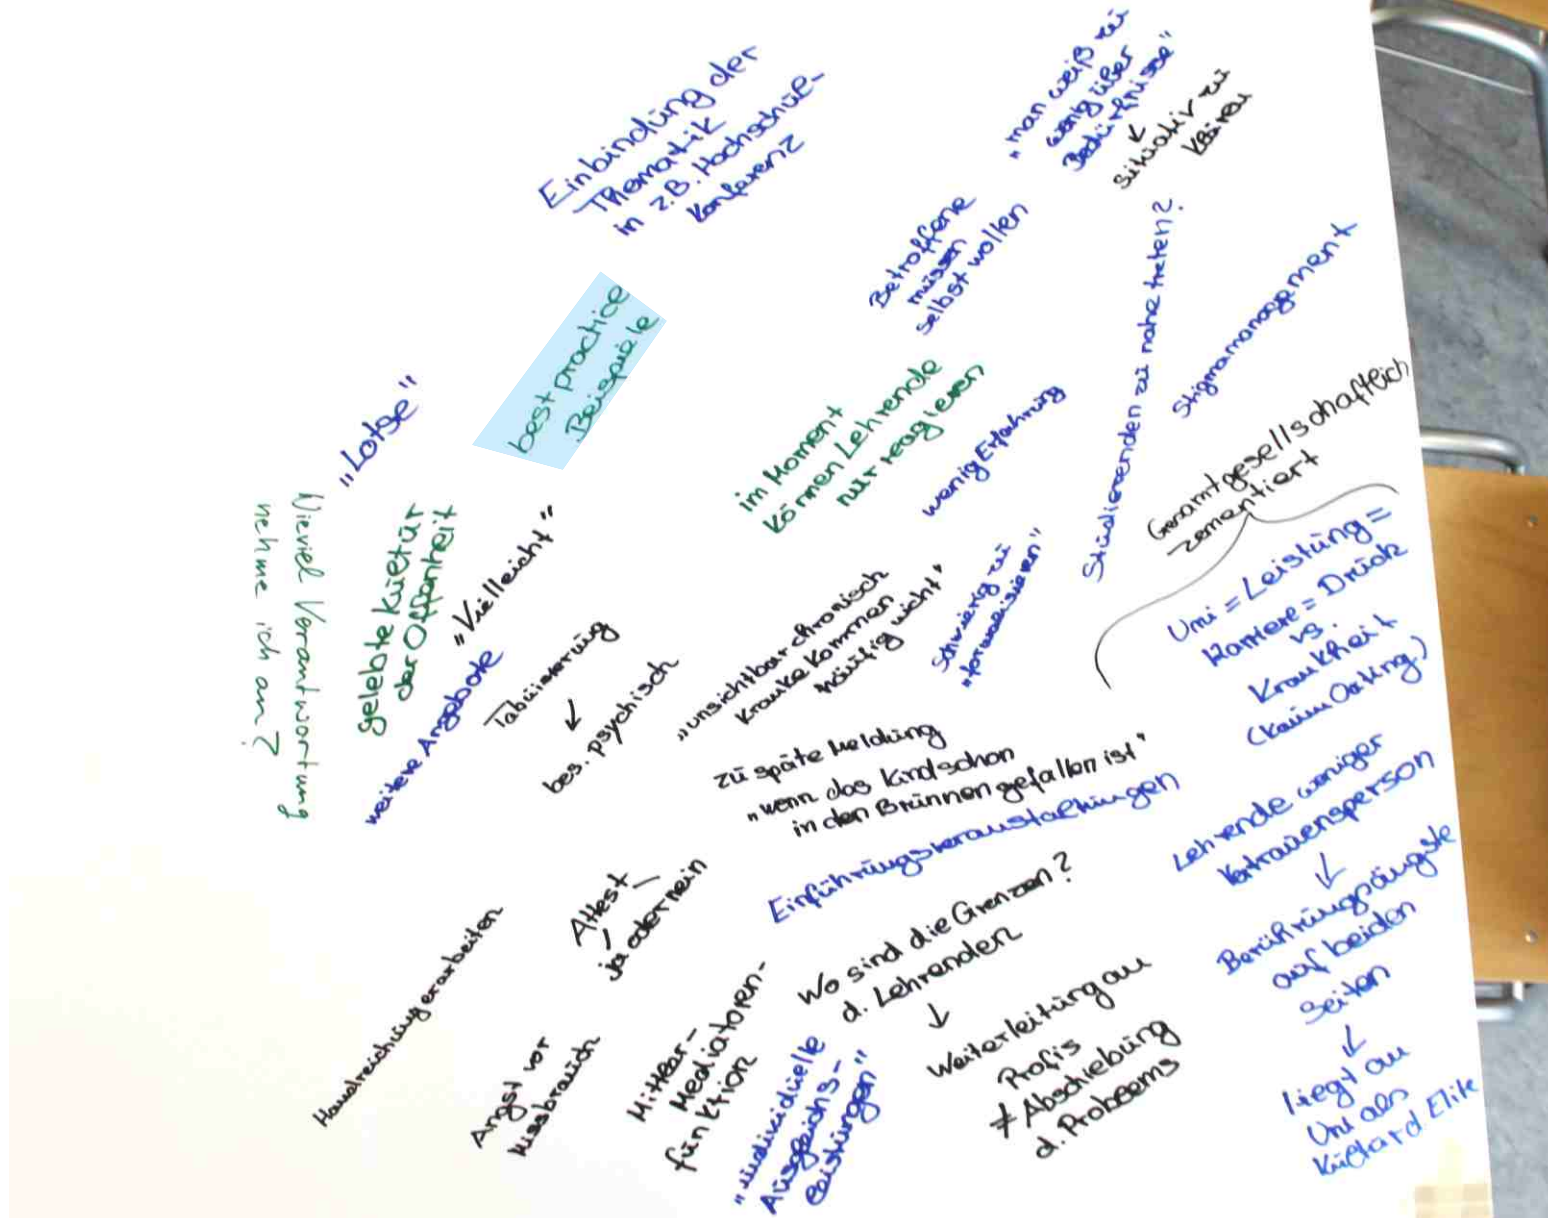 Einbindung der
Thematik
in z.B. Hochschul-
konferenz
„man weiß zu
wenig über
Bedürfnisse"
↙
situativ zu
klären
Betroffene
müssen
selbst wollen
Studierenden zu nahe treten?
Stigmamanagement
best practice
Beispiele
„Lotse"
im Moment
können Lehrende
nur reagieren
wenig Erfahrung
Gesamtgesellschaftlich
zementiert
Uni = Leistung =
Karriere = Druck
vs.
Krankheit
(kaum Outing)
Wieviel Verantwortung
nehme ich an?
gelebte Kultur
der Offenheit
„Vielleicht"
weitere Angebote
Tabuisierung
↓
bes. psychisch
„unsichtbar chronisch
Kranke kommen
häufig nicht"
Schwierig zu
„formalisieren"
zu späte Meldung
„wenn das Kind schon
in den Brunnen gefallen ist"
Einführungsveranstaltungen
Lehrende weniger
Vertrauensperson
↓
Berührungsängste
auf beiden
Seiten
↓
liegt an
Uni als
Attest
ja oder nein
Handreichung erarbeiten
Angst vor
Missbrauch
Mittler-
Mediatoren-
funktion
Wo sind die Grenzen?
d. Lehrenden
↓
Weiterleitung an
Profis
≠ Abschiebung
d. Problems
„individuelle
Ausgleichs-
leistungen"